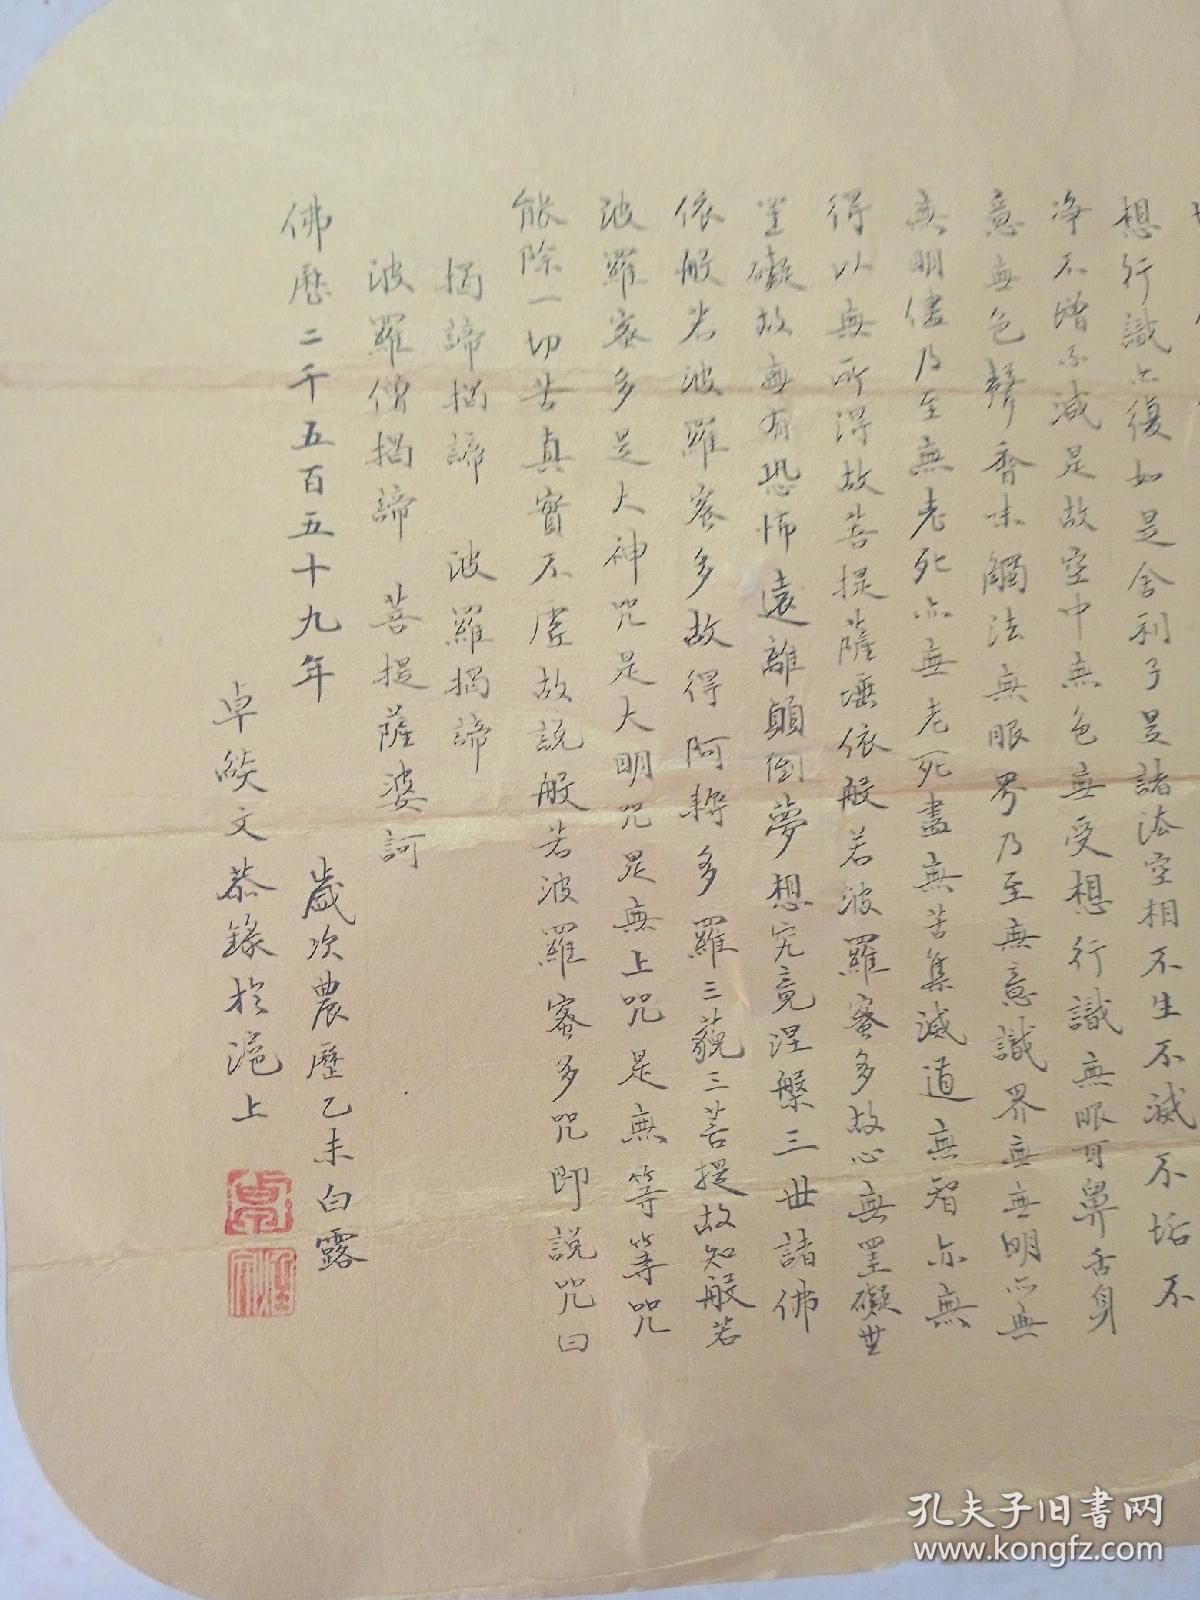 想行識亦復如是舍利子是諸法空相不生不滅不垢不
净不增不減是故空中無色無受想行識無眼耳鼻舌身
意無色聲香味觸法無眼界乃至無意識界無無明亦無
無明盡乃至無老死亦無老死盡無苦集滅道無智亦無
得以無所得故菩提薩埵依般若波羅蜜多故心無罣礙無
罣礙故無有恐怖遠離顛倒夢想究竟涅槃三世諸佛
依般若波羅蜜多故得阿耨多羅三藐三菩提故知般若
波羅蜜多是大神咒是大明咒是無上咒是無等等咒
能除一切苦真實不虛故說般若波羅蜜多咒即說咒曰
揭諦揭諦 波羅揭諦
波羅僧揭諦 菩提薩婆訶
佛歷二千五百五十九年
歲次農歷乙未白露
卓 文恭錄於滬上
孔夫子旧书网
www.kongfz.com